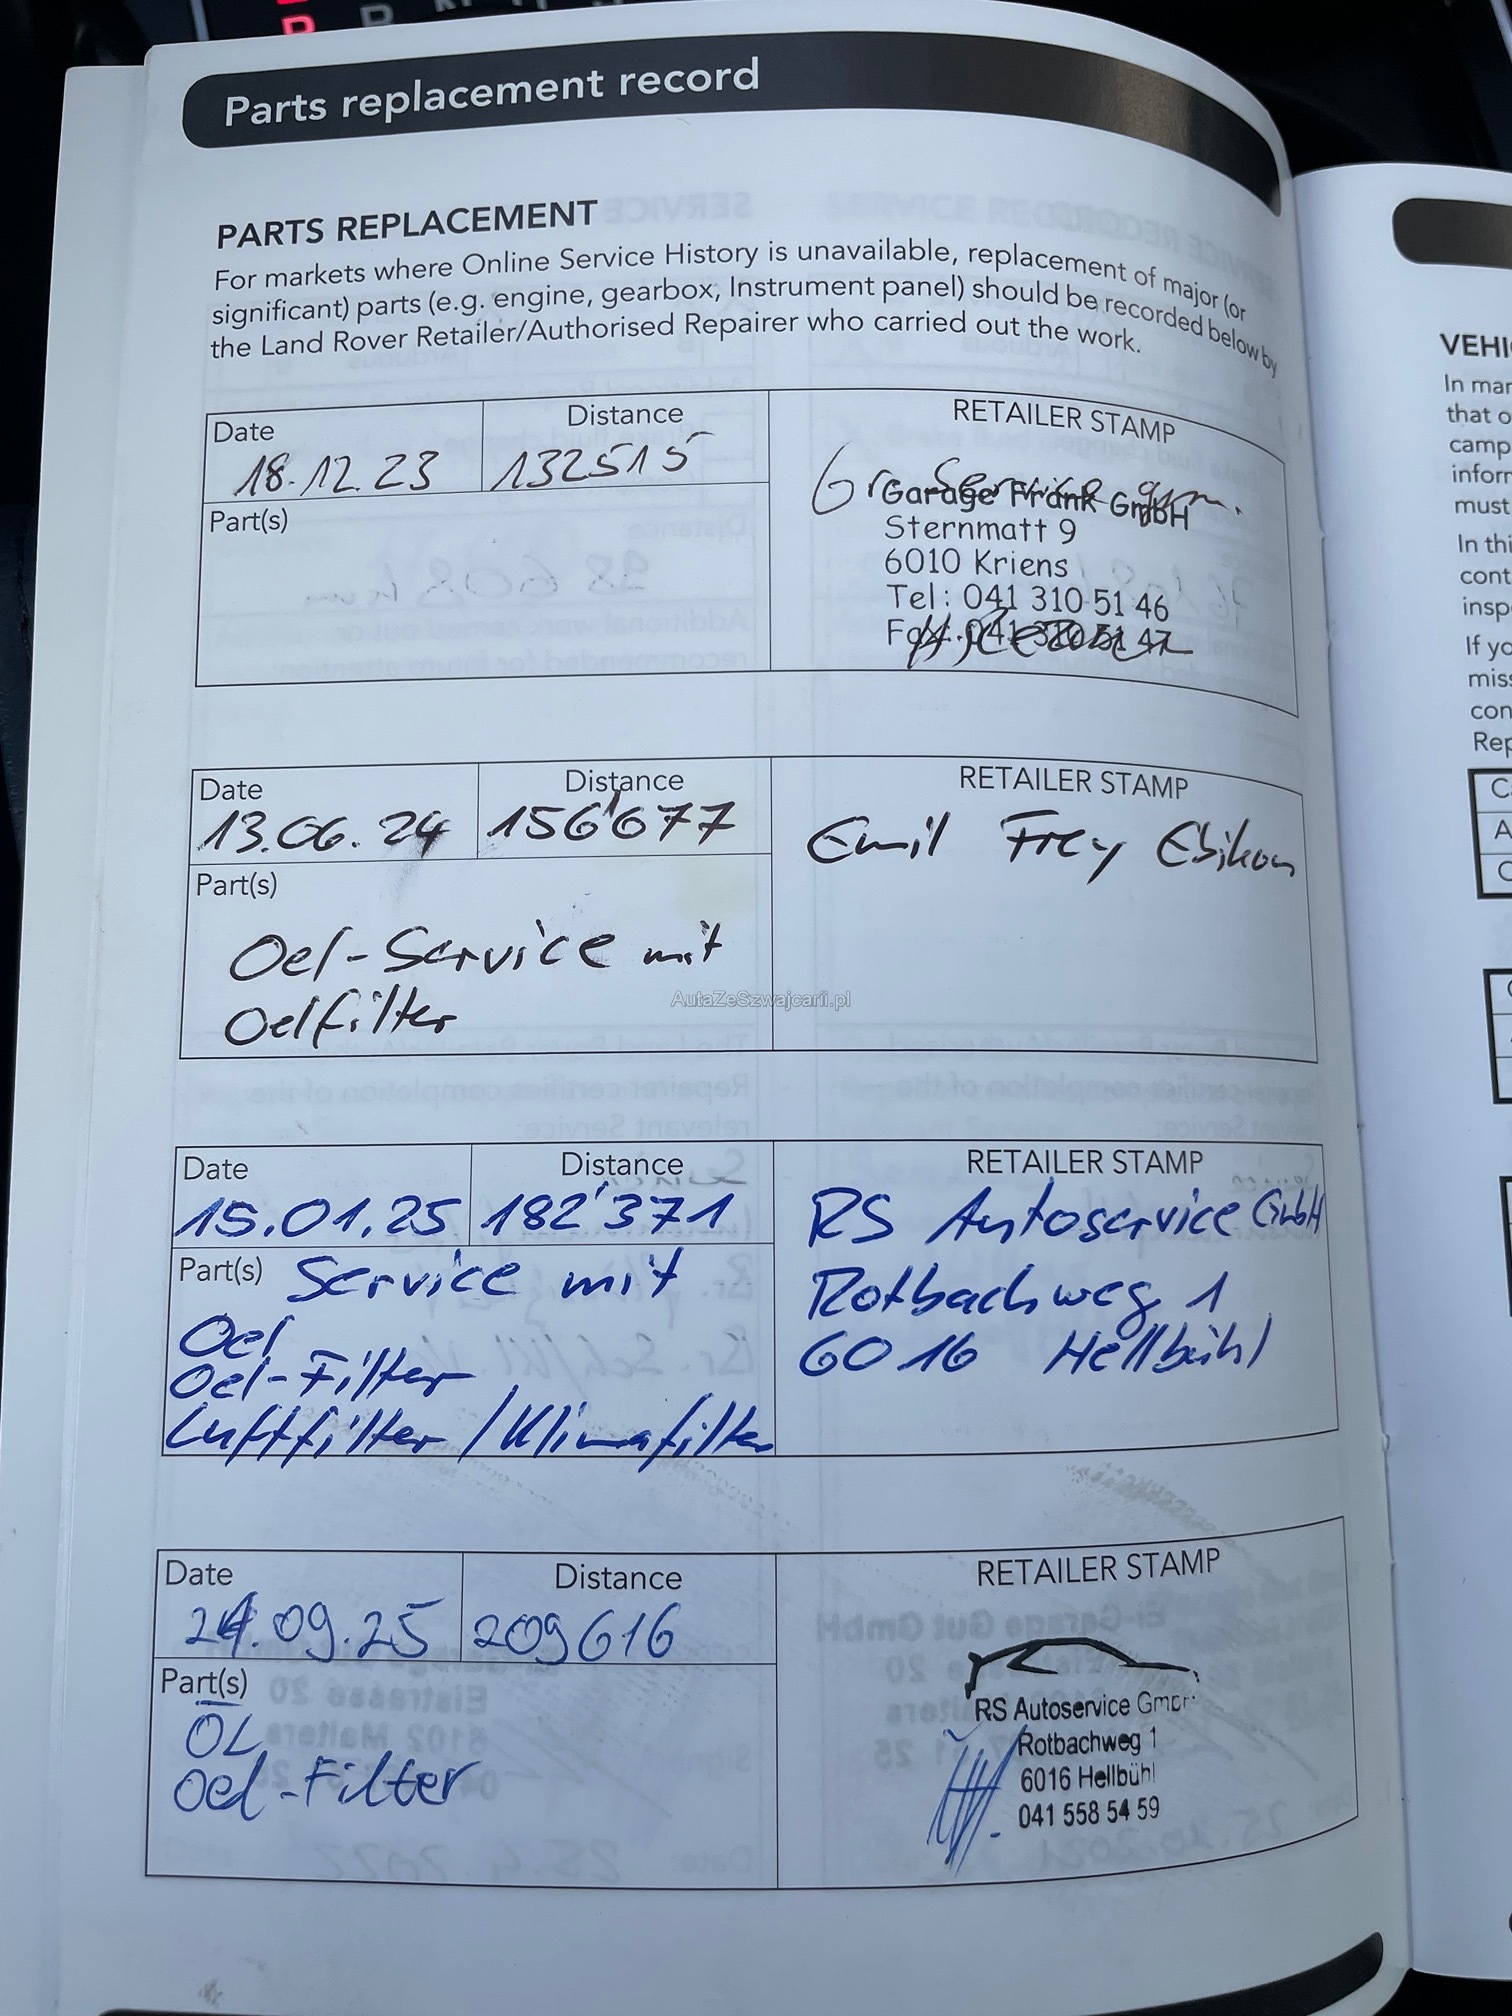 Parts replacement record
PARTS REPLACEMENT
For markets where Online Service History is unavailable, replacement of major (or
significant) parts (e.g. engine, gearbox, Instrument panel) should be recorded below by
the Land Rover Retailer/Authorised Repairer who carried out the work.
Date
Distance
RETAILER STAMP
18.12.23
132515
Part(s)
Gr. Service gem.
Garage Frank GmbH
Sternmatt 9
6010 Kriens
Tel: 041 310 51 46
Fax: 041 310 51 47
Date
Distance
RETAILER STAMP
13.06.24
156'677
Emil Frey Ebikon
Part(s)
Oel-Service mit
Oelfilter
AutaZeSzwajcarii.pl
Date
Distance
RETAILER STAMP
15.01.25
182'371
RS Autoservice GmbH
Rotbachweg 1
6016 Hellbühl
Part(s)
Service mit
Oel
Oel-Filter
Luftfilter / Klimafilter
Date
Distance
RETAILER STAMP
24.09.25
209616
Part(s)
ÖL
Oel-Filter
RS Autoservice GmbH
Rotbachweg 1
6016 Hellbühl
041 558 54 59
VEHI
In mar
that o
camp
inforr
must
In thi
cont
insp
If yo
miss
con
Rep